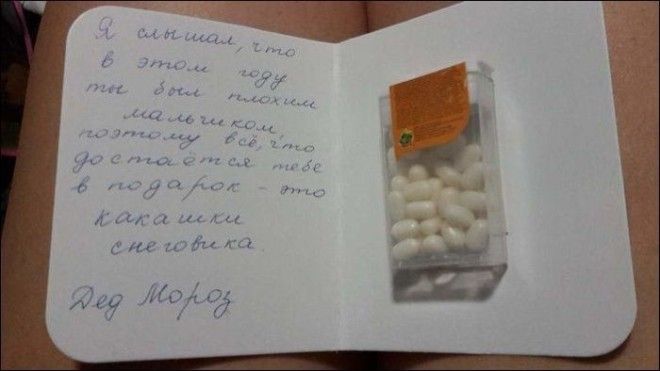 Я слышал, что
в этом году
ты был плохим
мальчиком,
поэтому всё, что
достаётся тебе
в подарок - это
какашки
снеговика.
Дед Мороз